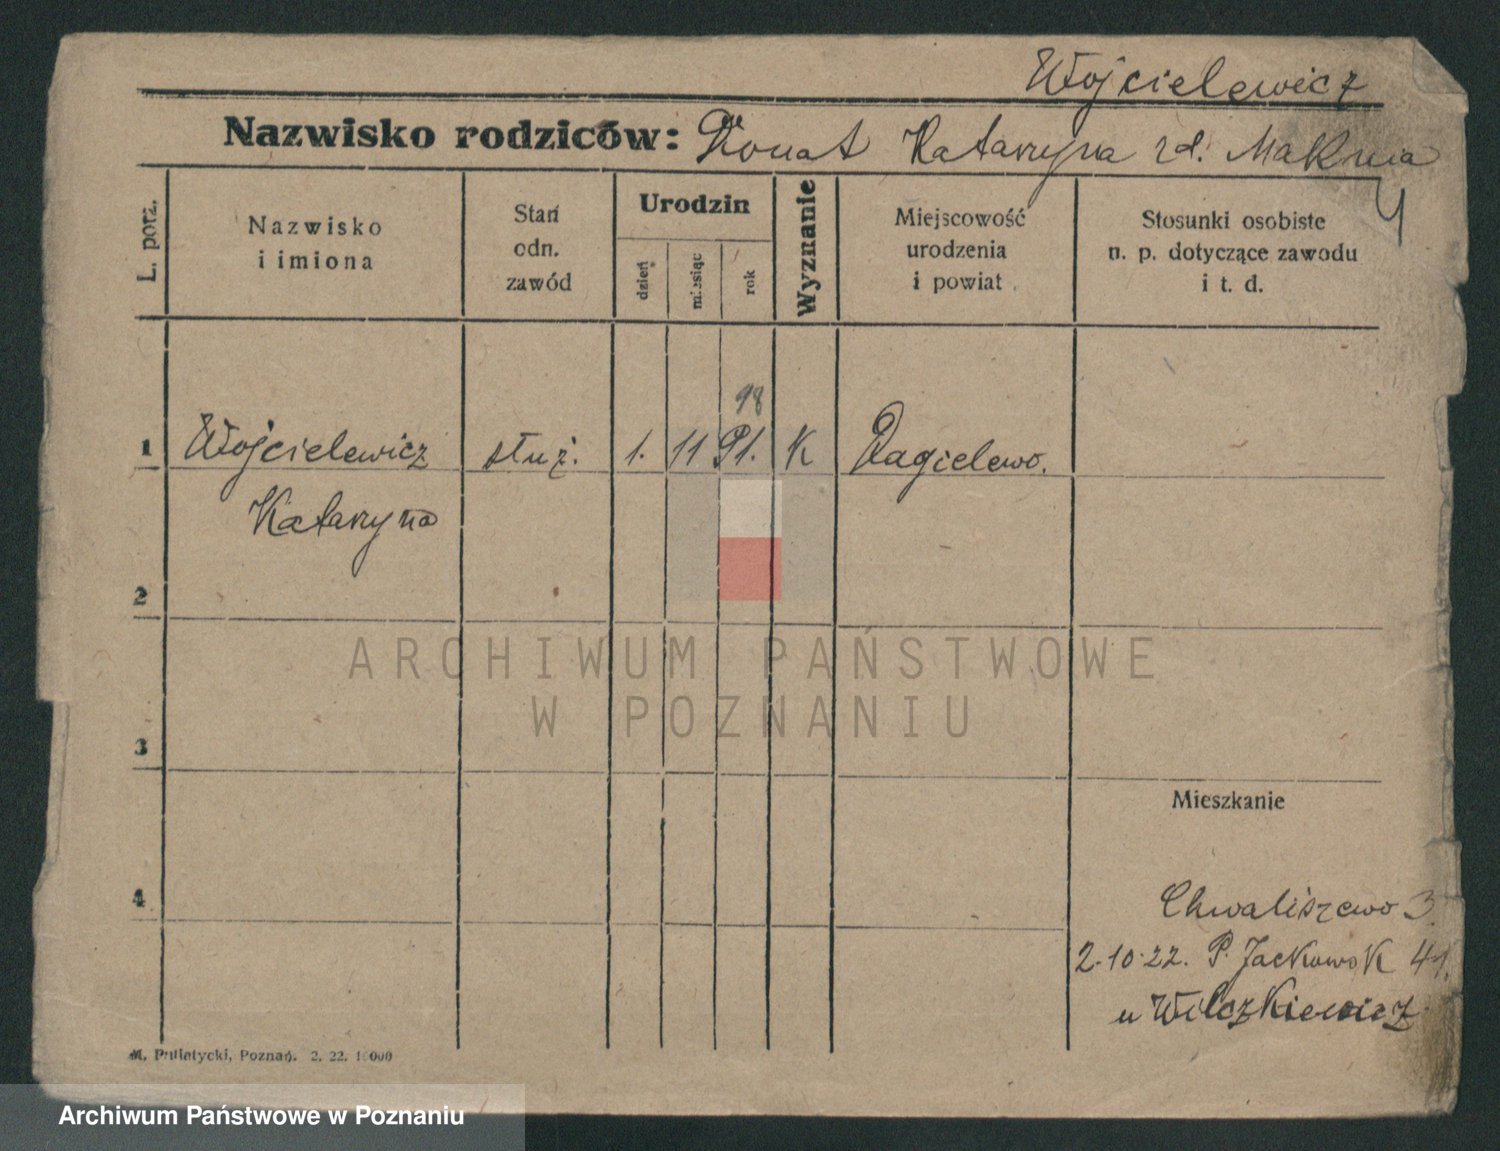 Wojcielewicz
Nazwisko rodziców: Donat Katarzyna zd. Maknia
4
L. porz.
Nazwisko
i imiona
Stan
odn.
zawód
Urodzin
dzień
miesiąc
rok
Wyznanie
Miejscowość
urodzenia
i powiat
Stosunki osobiste
n. p. dotyczące zawodu
i t. d.
98
1 Wojcielewicz służ. 1. 11 91. K Ragielewo.
Katarzyna
2
3
Mieszkanie
4
Chwaliszewo 3.
2.10.22. P. Jackowsk 41.
u Wilczkiewicz
M. Putiatycki, Poznań. 2. 22. 10000
ARCHIWUM PAŃSTWOWE
W POZNANIU
Archiwum Państwowe w Poznaniu